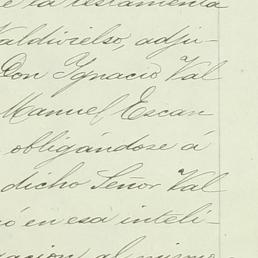 e la testamenta
Valdivielso, adju-
Don Ygnacio Val
Manuel Escan
obligándose á
dicho Señor Val
ó en esa inteli-
gacion al mismo